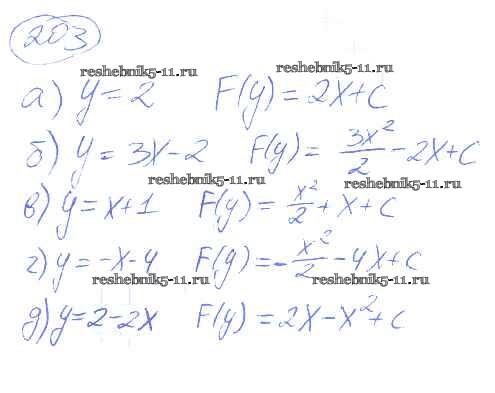 203
reshebnik5-11.ru reshebnik5-11.ru
а) y = 2 F(y) = 2x+c
б) y = 3x-2 F(y) = 3x²/2 - 2x+c
reshebnik5-11.ru reshebnik5-11.ru
в) y = x+1 F(y) = x²/2 + x + c
г) y = -x-4 F(y) = - x²/2 - 4x+c
reshebnik5-11.ru reshebnik5-11.ru
д) y = 2-2x F(y) = 2x - x² + c